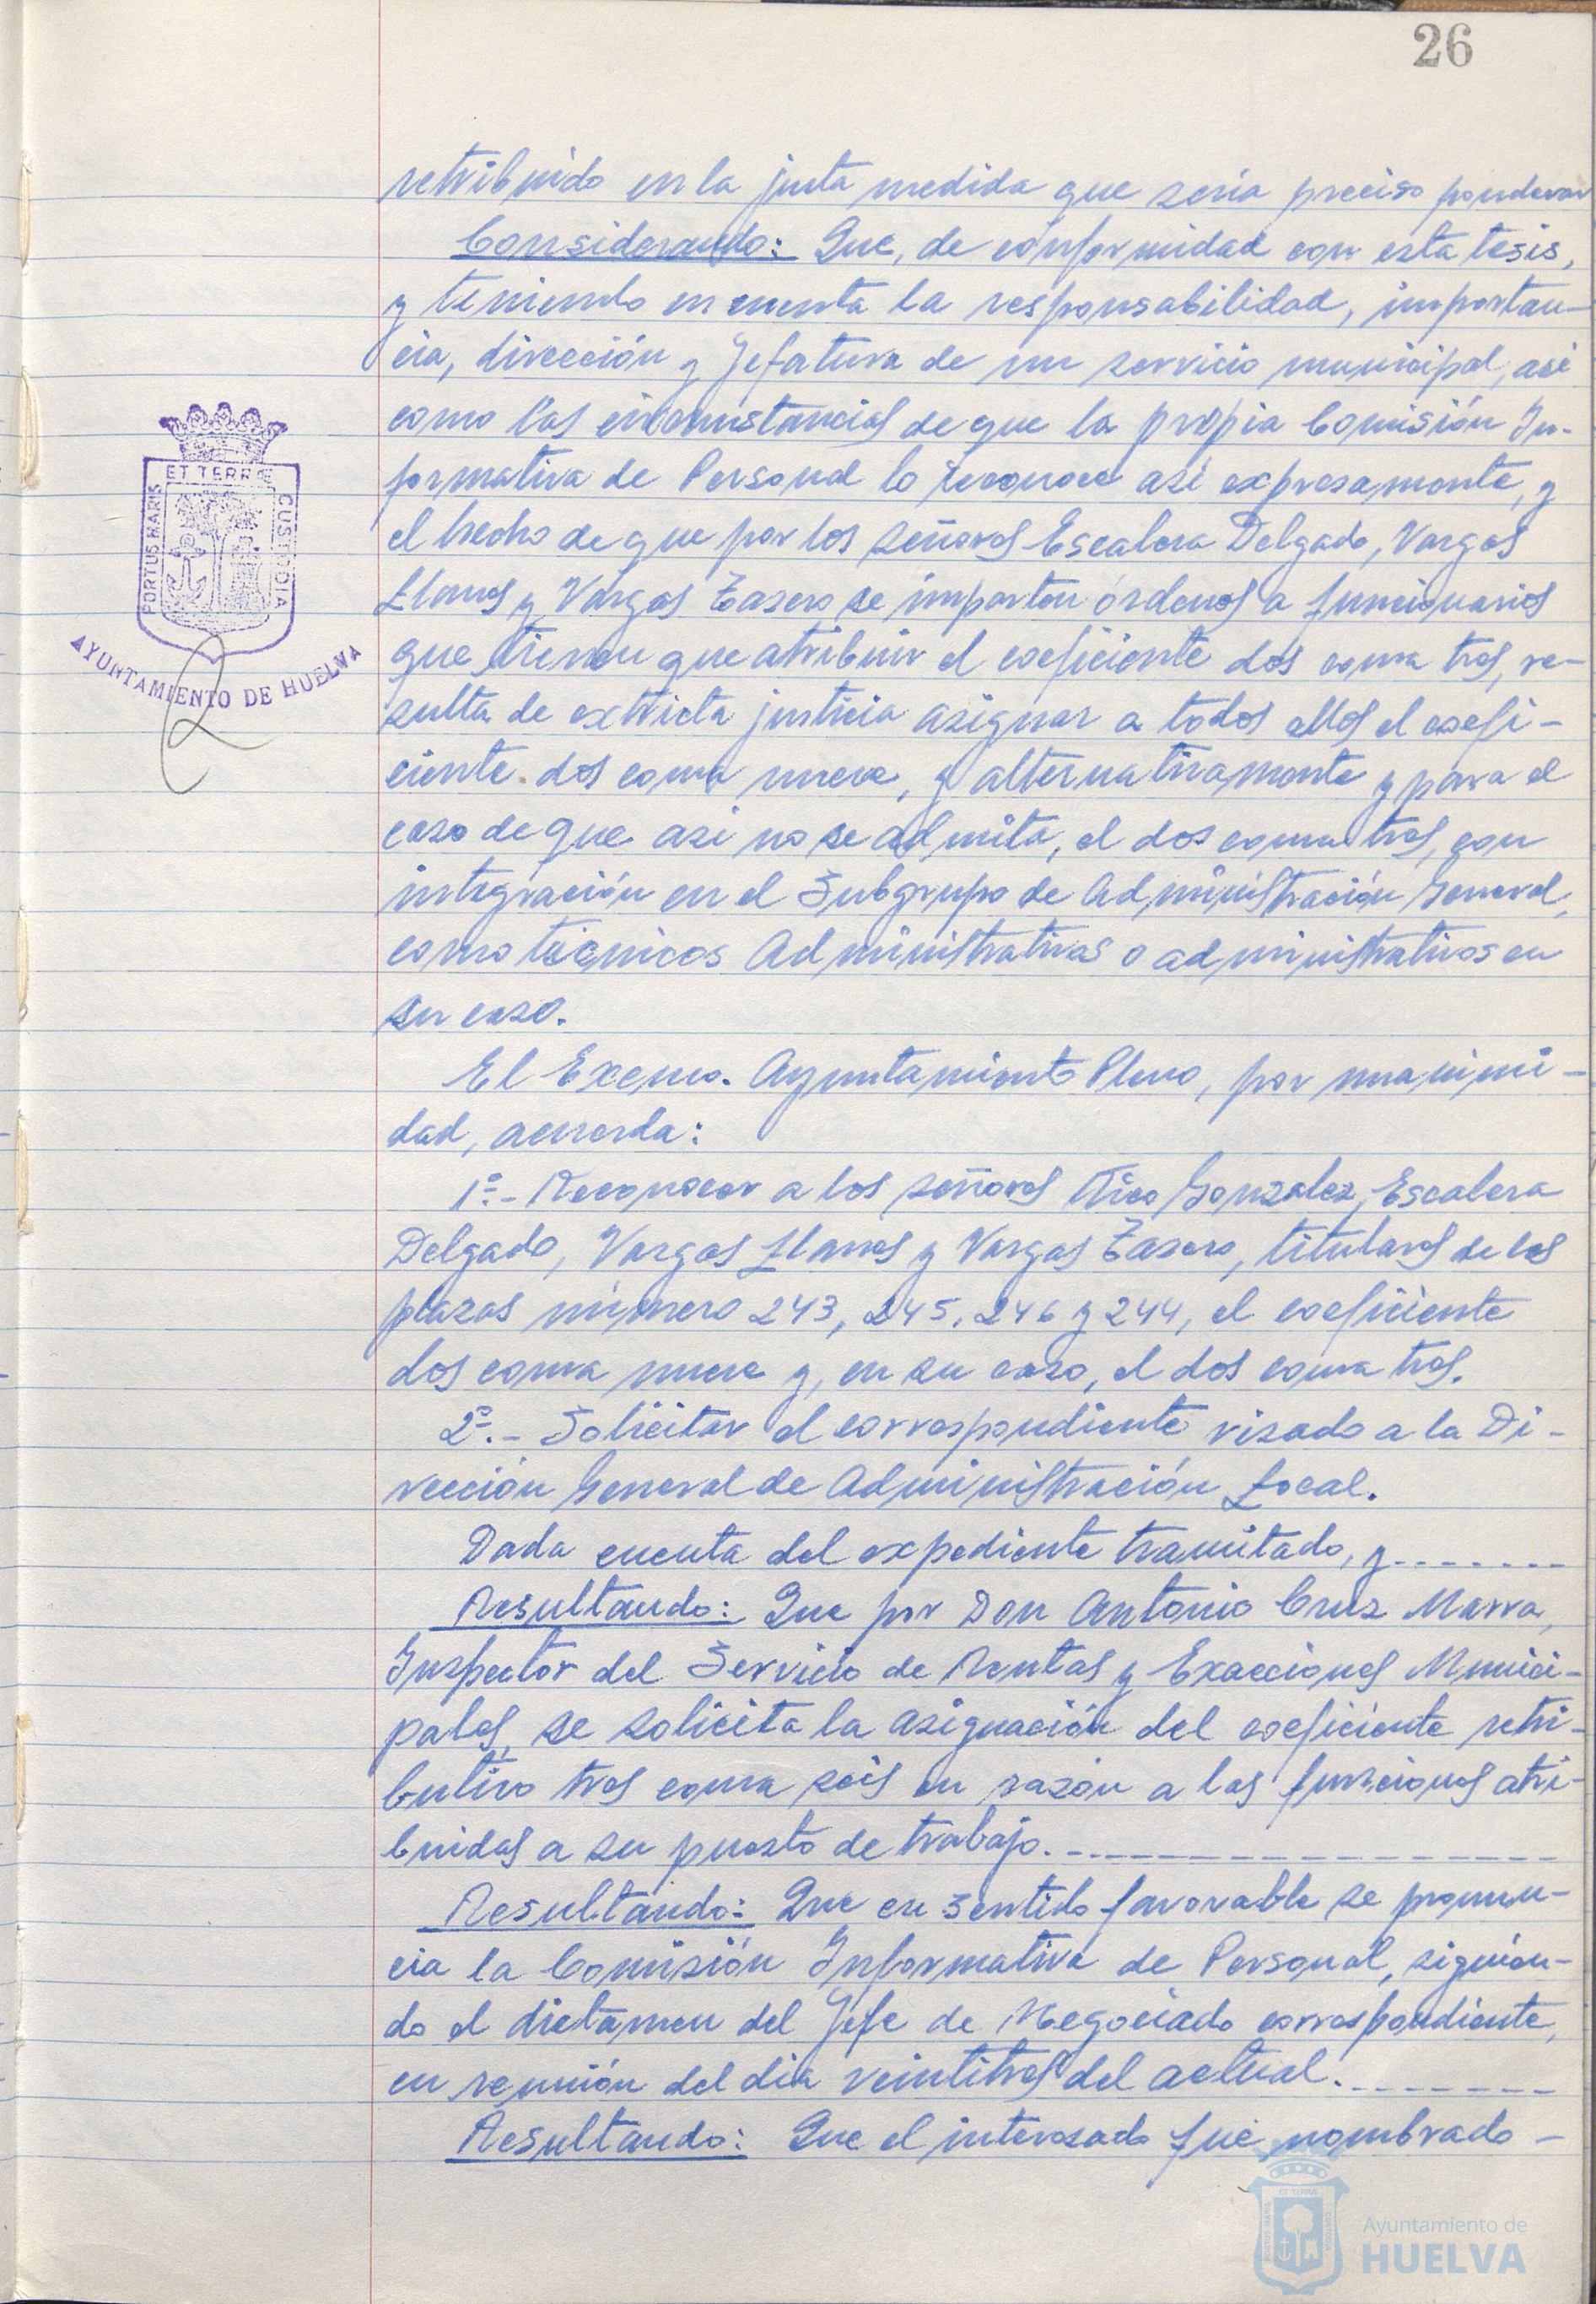 26
retribuido en la justa medida que sería preciso ponderar
Considerando: Que, de conformidad con esta tesis,
y teniendo en cuenta la responsabilidad, importan-
cia, dirección y Jefatura de un servicio municipal, así
como las circunstancias de que la propia Comisión In-
formativa de Personal lo reconoce así expresamente, y
el hecho de que por los señores Escalera Delgado, Vargas
Llanes y Vargas Zasero se imparten órdenes a funcionarios
que tienen que atribuir el coeficiente dos coma tres, re-
sulta de extricta justicia asignar a todos ellos el coefi-
ciente dos coma nueve, y alternativamente y para el
caso de que así no se admita, el dos coma tres, con
integración en el Subgrupo de Administración General,
como técnicos Administrativos o administrativos en
su caso.
El Excmo. Ayuntamiento Pleno, por unanimi-
dad, acuerda:
1º.- Reconocer a los señores Rico Gonzalez, Escalera
Delgado, Vargas Llanes y Vargas Zasero, titulares de las
plazas número 243, 245, 246 y 244, el coeficiente
dos coma nueve y, en su caso, el dos coma tres.
2º.- Solicitar el correspondiente visado a la Di-
rección General de Administración Local.
Dada cuenta del expediente tramitado, y-------
Resultando: Que por Don Antonio Cruz Marra,
Inspector del Servicio de Rentas y Exacciones Munici-
pales, se solicita la asignación del coeficiente retri-
butivo tres coma seis en razón a las funciones atri-
buidas a su puesto de trabajo.----------------
Resultando: Que en sentido favorable se pronun-
cia la Comisión Informativa de Personal, siguien-
do el dictamen del Jefe de Negociado correspondiente,
en reunión del dia veintitres del actual.-------
Resultando: Que el interesado fué nombrado -
PORTUS MARIS
ET TERRÆ
CUSTODIA
AYUNTAMIENTO DE HUELVA
Ayuntamiento de
HUELVA